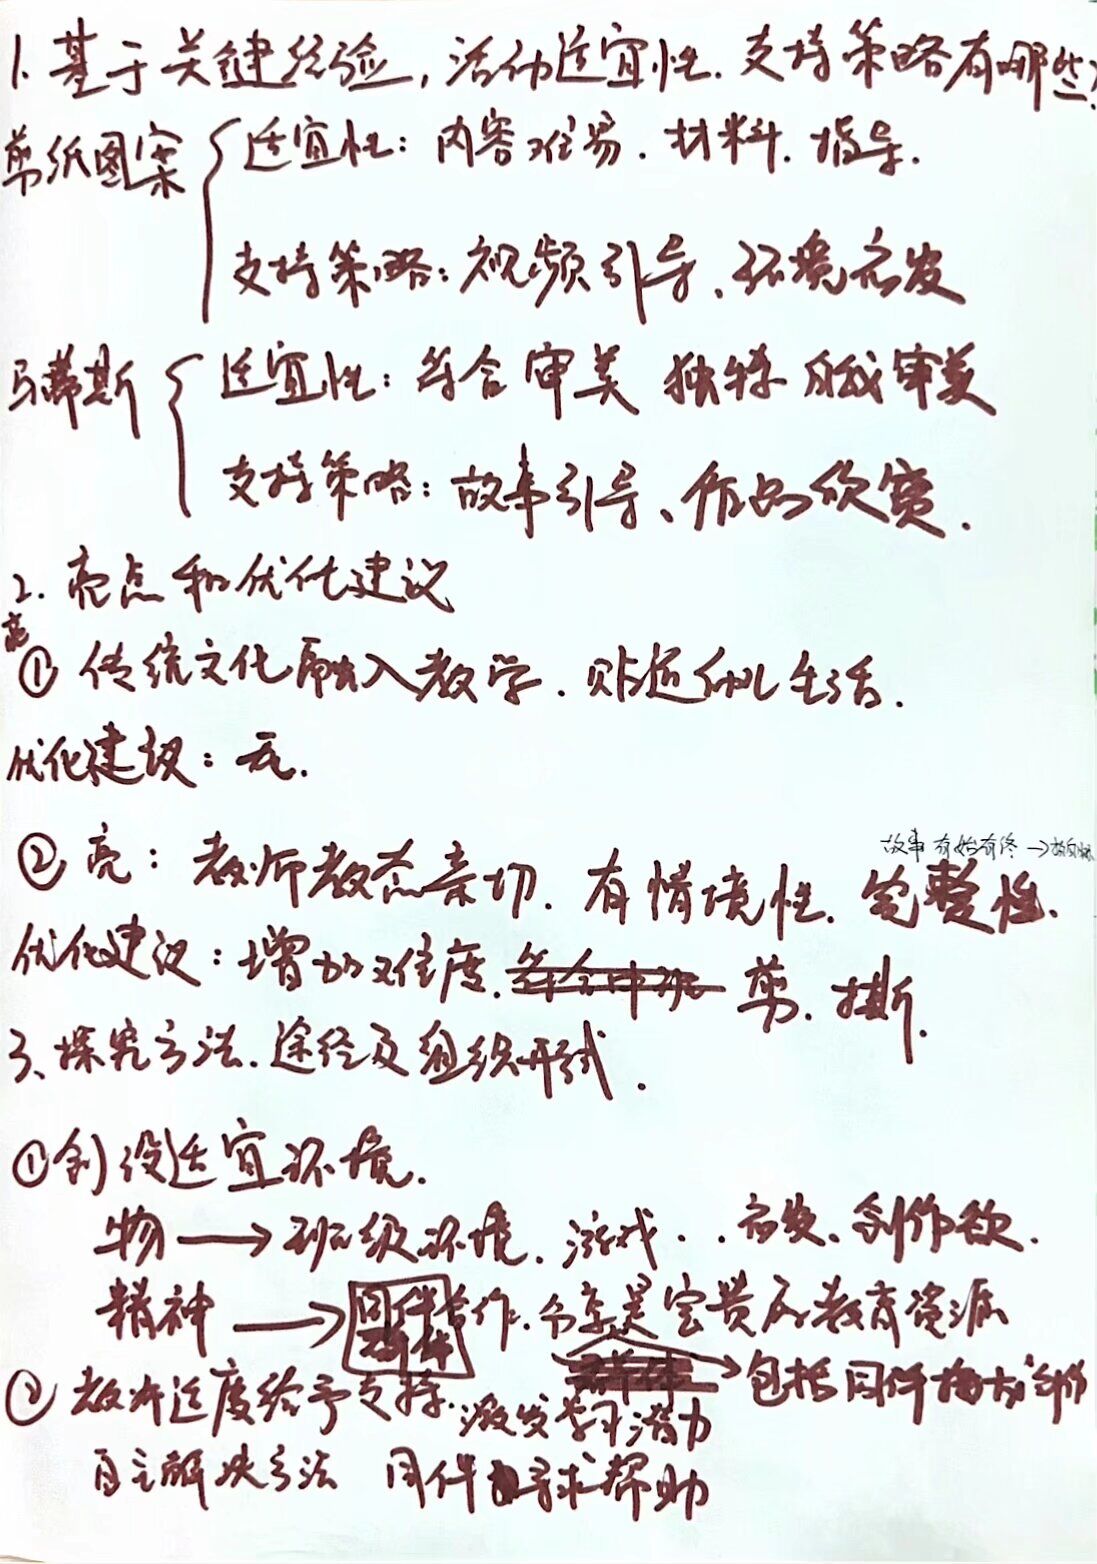 1. 基于关键经验,活动适宜性.支持策略有哪些?
剪纸图案
适宜性:内容难易.材料.指导.
支持策略:视频引导、环境启发
马蒂斯
适宜性:符合审美 独特 审美
支持策略:故事引导、作品欣赏.
2. 亮点和优化建议
亮
① 传统文化融入教学.贴近幼儿生活.
优化建议:无.
故事 有始有终 →
② 亮:教师教态亲切.有情境性.完整性.
优化建议:增加难度. 剪.撕.
3、探究方法.途径及组织形式.
①创设适宜环境.
物 → 班级环境.游戏..启发、创作欲.
精神 → 合作.分享是宝贵的教育资源
→包括同伴
② 教师适度给予支持.激发学习潜力
自主解决方法 同伴 寻求帮助